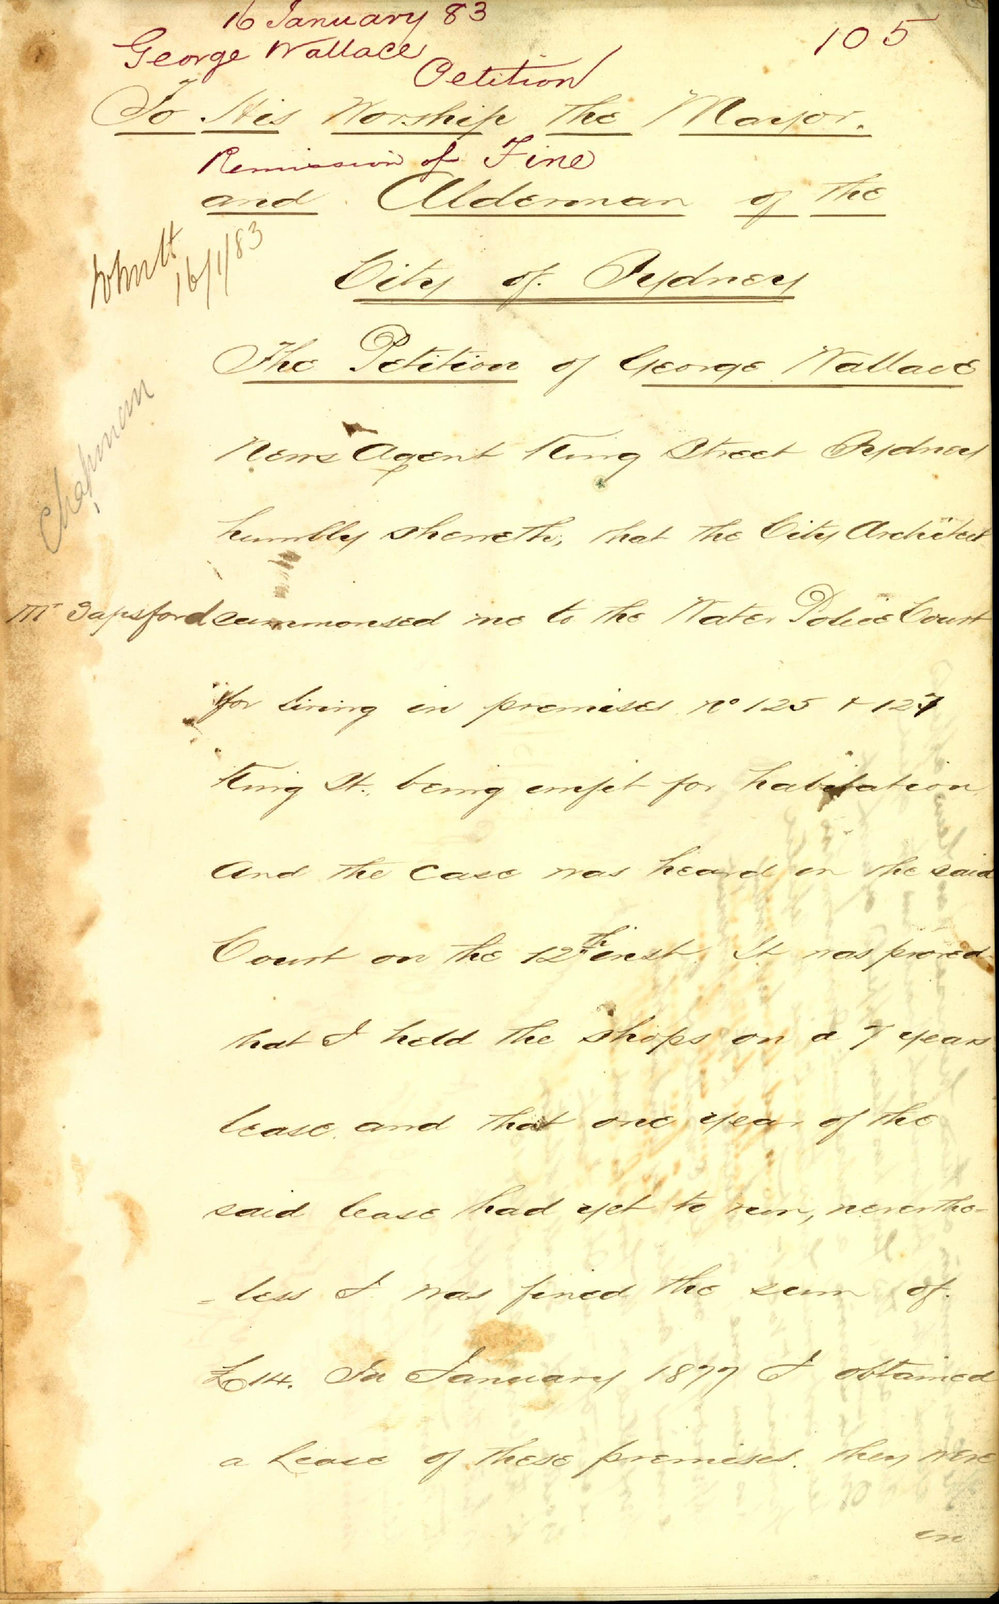 16 January 83
105
George Wallace
Petition
To His Worship the Mayor.
Remission of Fine
and Alderman of the
16/1/83
City of Sydney
The Petition of George Wallace
Chapman
News Agent King Street Sydney
humbly sheweth, that the City Architect
Mr Sapsford summonsed me to the Water Police Court
for living in premises No 125 & 127
King St. being unfit for habitation.
And the case was heard in the said
Court on the 12th inst. It was proved
that I held the shops on a 7 years
lease and that one year of the
said lease had yet to run, neverthe-
-less I was fined the sum of.
£14. In January 1877 I obtained
a Lease of these premises. they were
in